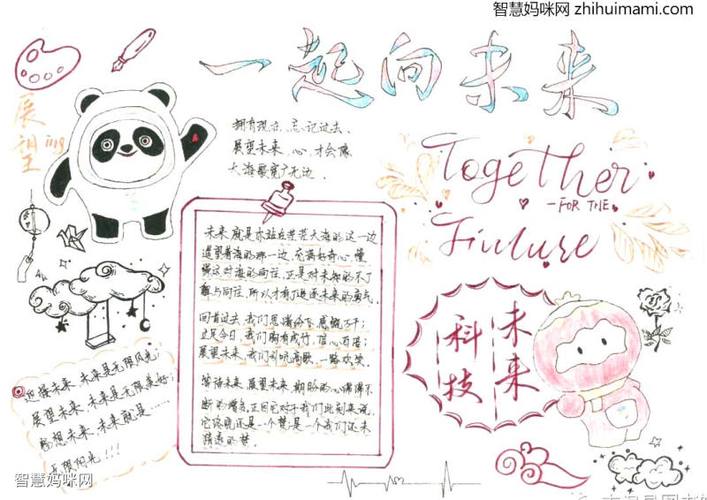 智慧妈咪网 zhihuimami.com
一起向未来
展望
ing
拥有现在，忘记过去、
展望未来，心，才会像
大海那宽广无边.
Together
-FOR THE
Fiuture
未来就是你站在茫茫大海的这一边
遥望着海的那一边，充满好奇心，憧
憬这对海的向往，正是对未知的不了
解与向往，所以才有了追逐未来的勇气。
回首过去，我们思绪份飞，感慨万千；
立足今日，我们胸有成竹，信心百倍；
展望未来，我们引吭高歌，一路欢笑。
等待未来，展望未来，期盼的心得得不
断的增多，正因它对于我们此刻来说，
它终究还是一个梦，是一个我们还未
未来
科技
未来，未来是无限风光；
展望未来，未来是无限美好；
感想未来，未来就是……
无限阳光！！！
智慧妈咪网